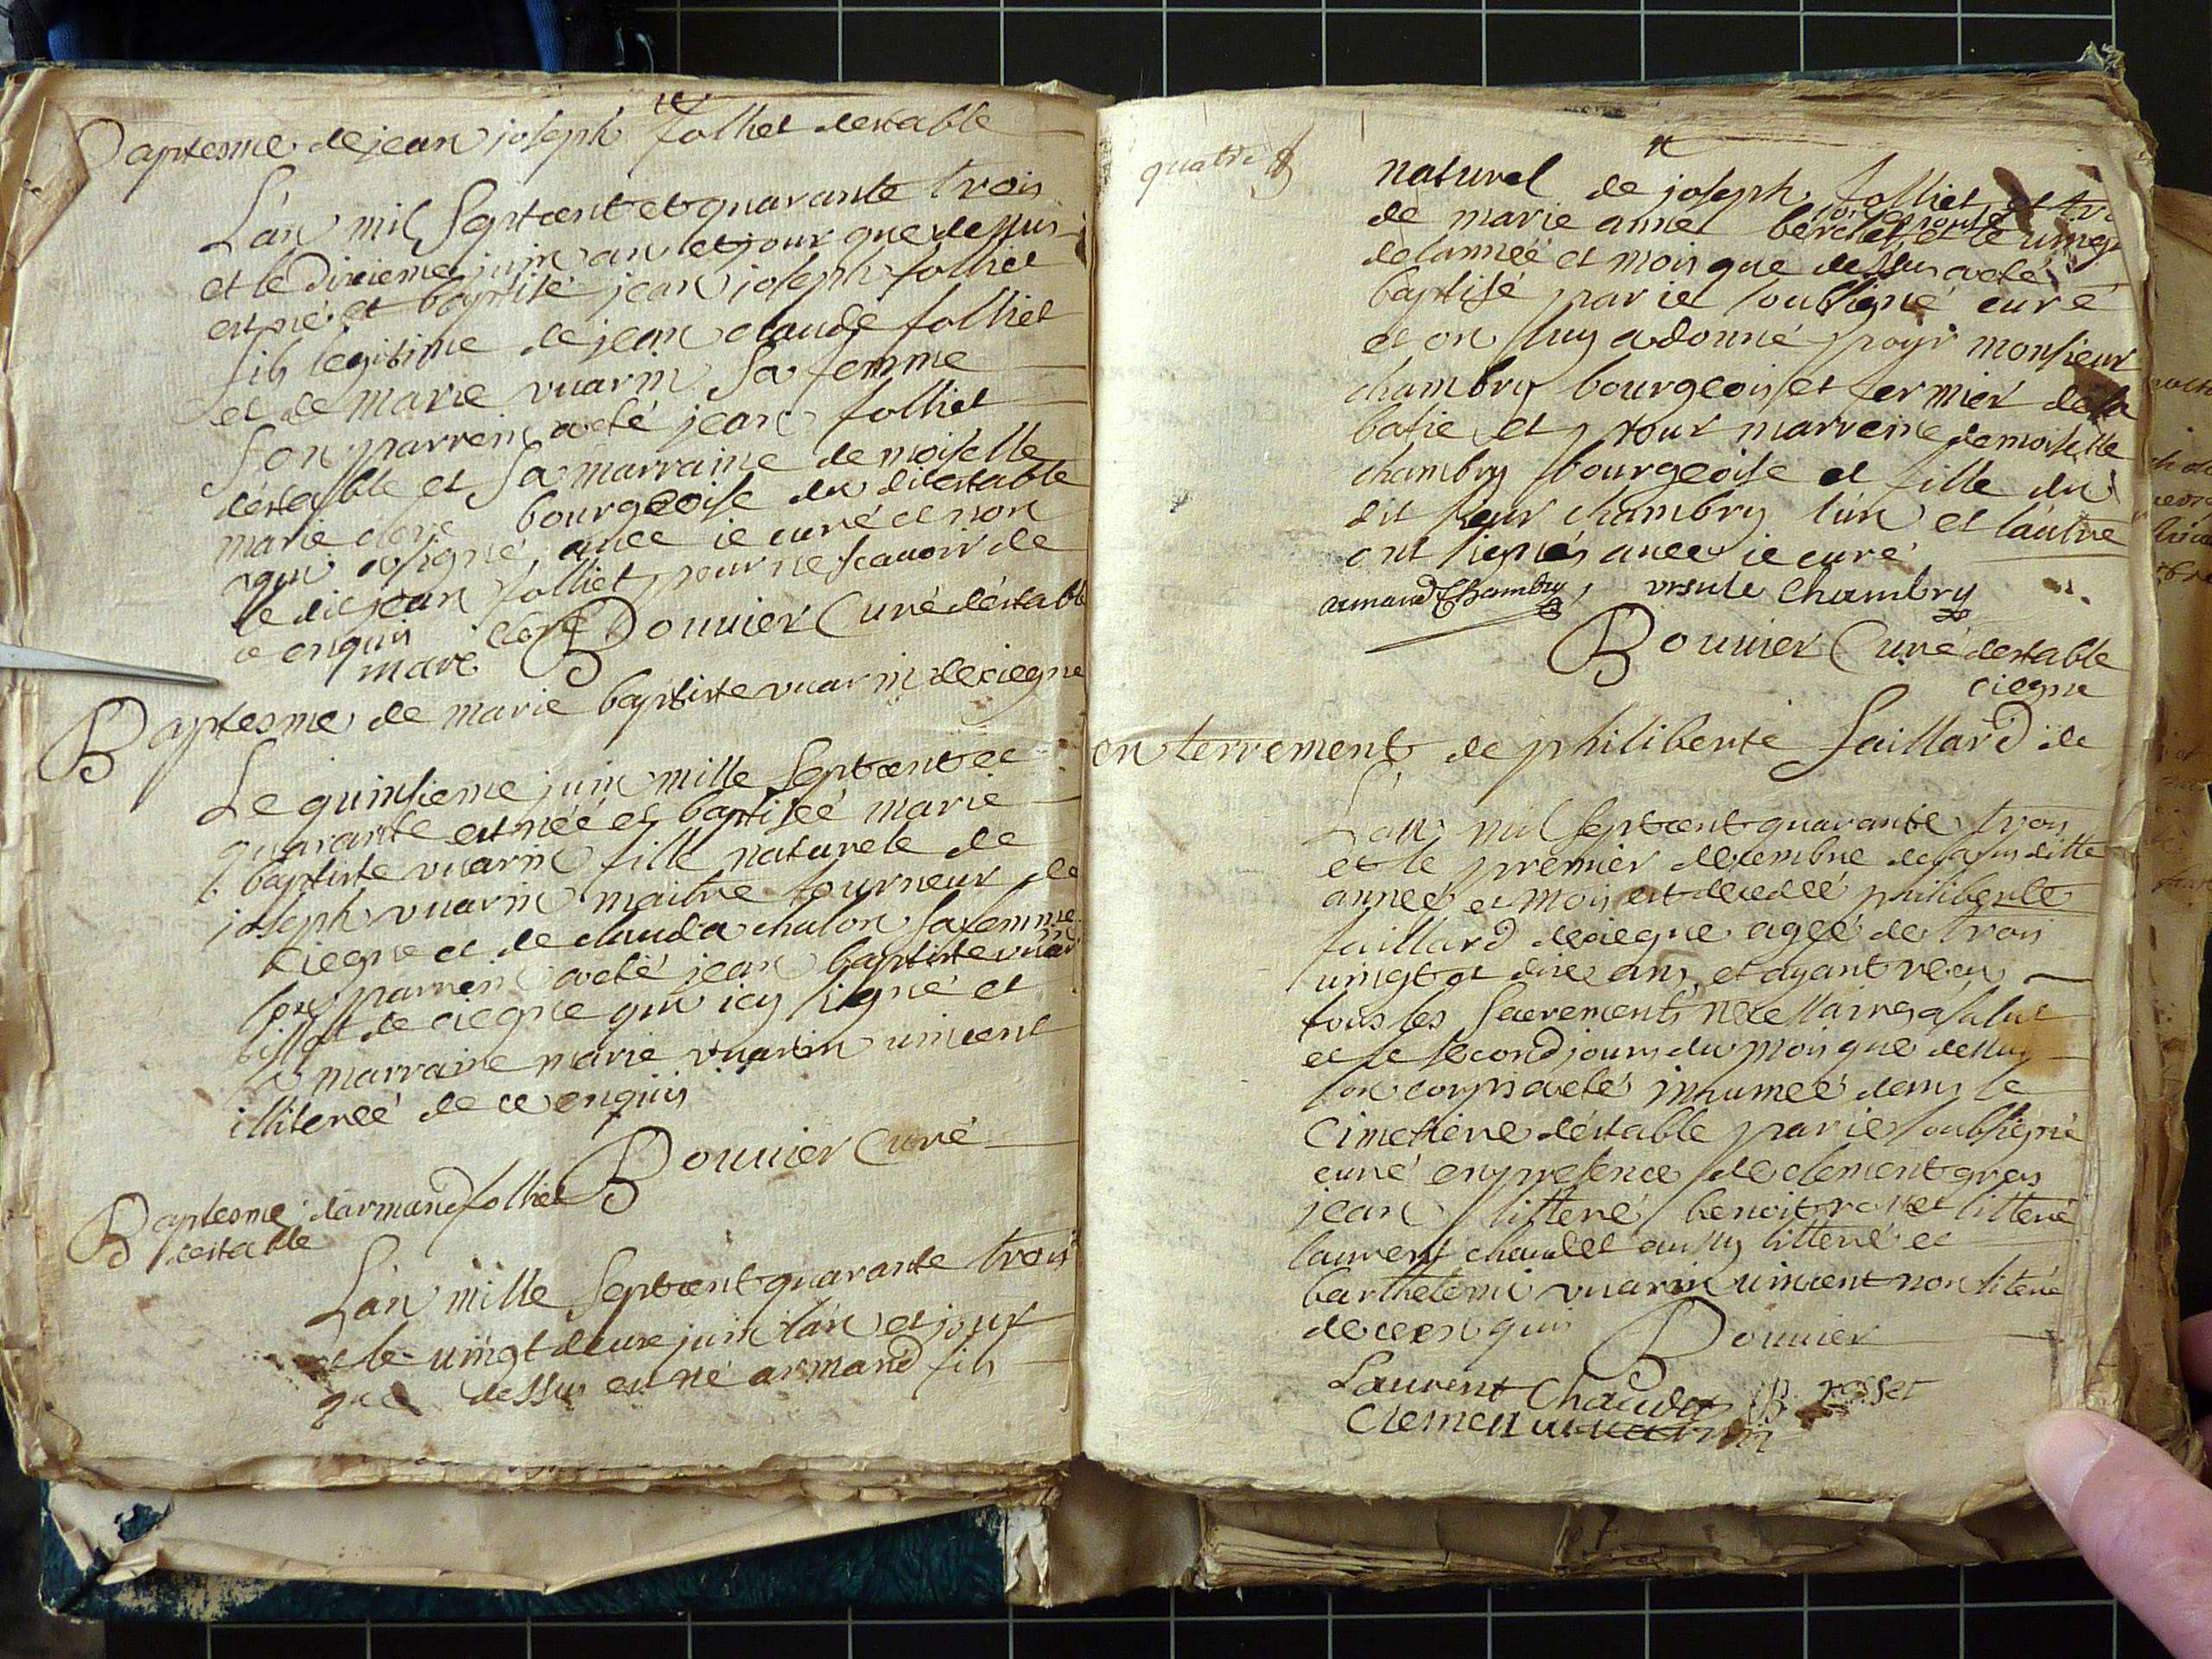 Baptesme de jean joseph folliet destable
L'an mil septcent et quarante trois
et le dixieme juin an et jour que dessus
est né et baptisé jean joseph folliet
fils legitime de jean claude folliet
et de marie vuarin sa femme
son parrein a eté jean folliet
destable et sa marraine demoiselle
marie clere bourgeoise du dit estable
qui a signé avec ie curé et non
le dit jean folliet pour ne scauoir de
ce enquis
marie clere Bouuier Curé destable
Baptesme de marie baptiste vuarin de ciegne
Le quinsieme juin mille septcent et
quarante est néé et baptiséé marie
baptiste vuarin fille naturele de
joseph vuarin maitre tourneur de
ciegne et de clauda chalon sa femme
son parrein a eté jean baptiste
de ciegne qui icy signé et
sa marraine marie vuarin uincent
illiteréé de ce enquis
Bouuier Curé
Baptesme d'armand folliet
destable
L'an mille septcent quarante trois
et le uingt deuxe juin l'an et jour
que dessus est né armand fils
quatre
naturel de joseph folliet et
de marie anne berchet son epouse et le uingt
de l'annéé et mois que dessus a eté
baptisé par ie soubsigné curé
et on luy a donné pour monsieur
chambry bourgeois et fermier de la
batie et pour marreine demoiselle
chambry bourgeoise et fille du
dit sieur chambry l'un et l'autre
ont signés auec ie curé
armand Chambry, ursule Chambry
Bouuier Curé destable
ciegne
enterrement de philiberte saillard de
L'an mil septcent quarante trois
et le premier decembre de la susditte
annéé et mois est decedéé philiberte
saillard de ciegne agéé de trois
uingt et dixe ans, et ayant receu
tous les sacrements necessaires a salut
et le second jours du mois que dessus
son corps a eté inhuméé dans le
Cimetiere destable par ie soubsigné
curé en presence de clement gros
jean litteré benoit rosset litteré
laurent chaudet aussy litteré et
barthelemi vuarin uincent non literé
de ce enquis Bouuier
Laurent Chaudet B rosset
Clement vuarin